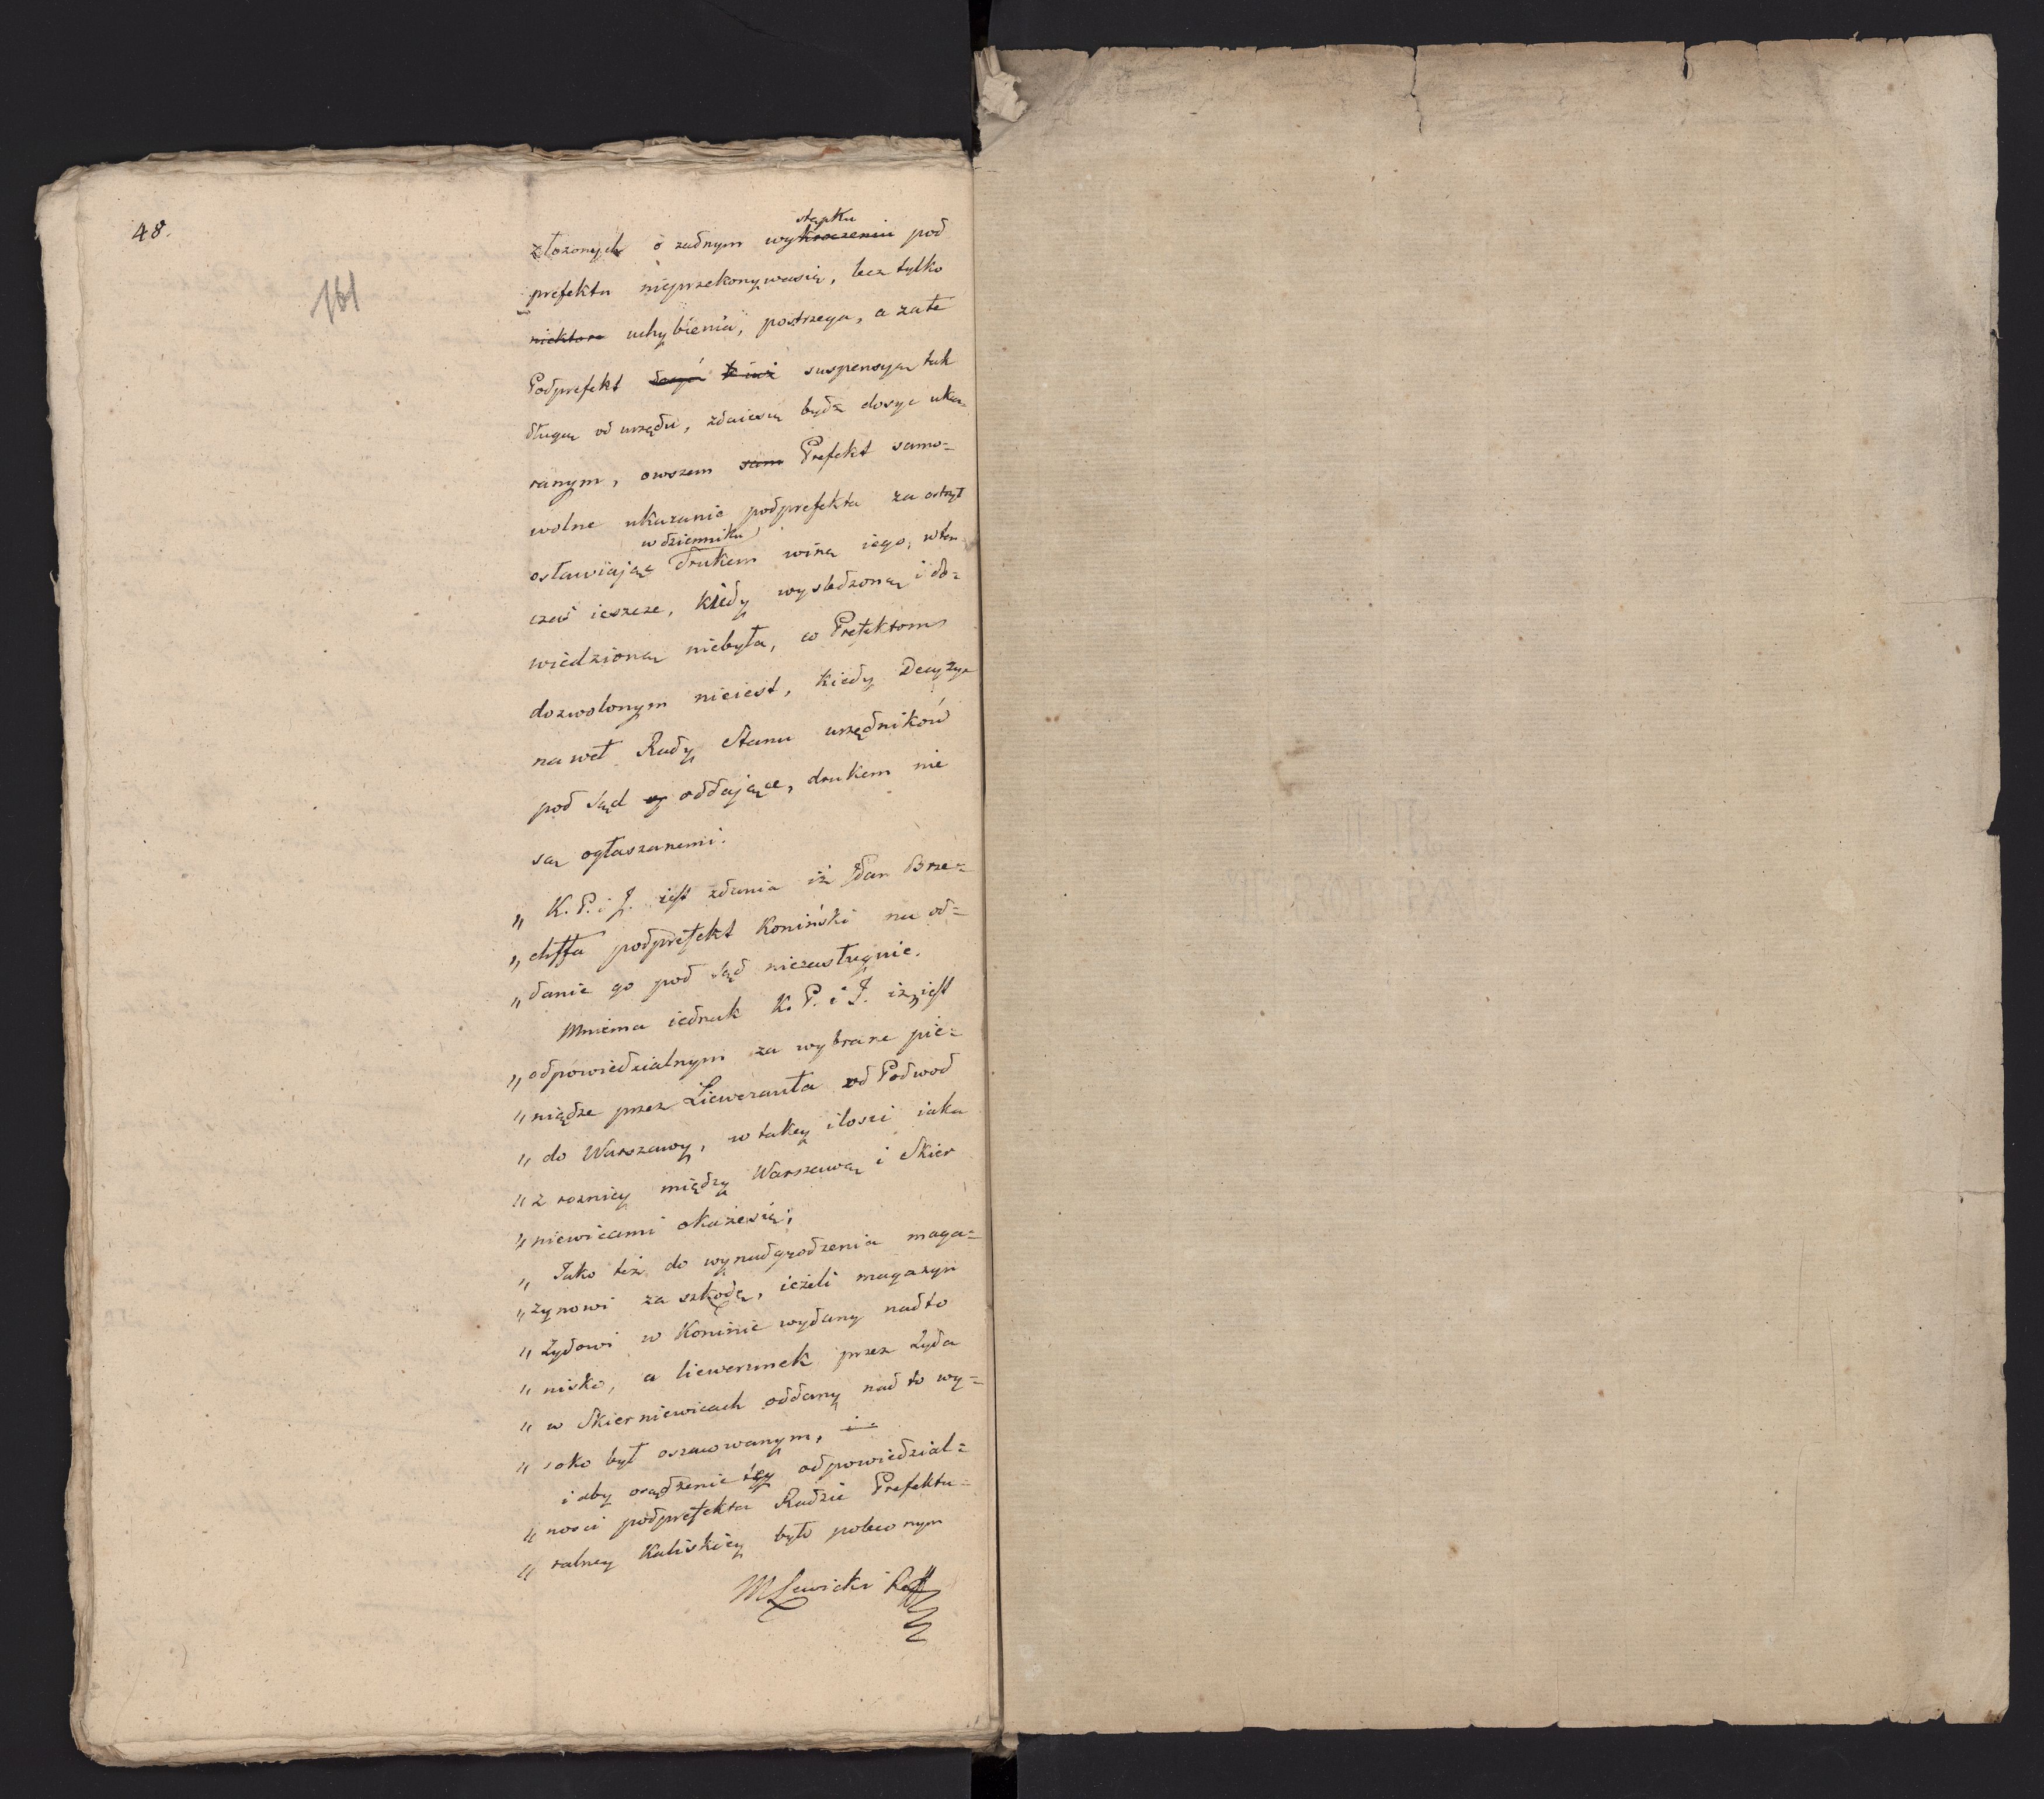 48.
161
złozonych o zadnym wykroczeniu stępku pod
prefekta nieprzekonywasię, lecz tylko
niektore uchybienia, postrzega, a zate
Podprefekt suspensyą tak
długą od urzędu, zdaiesię bydź dosyć uka-
ranym, owszem sam Prefekt samo=
wolne ukaranie podprefekta za ostrzył
w dzienniku
osławiając Drukiem winą iego, wten
czas ieszcze, kiedy wysledzoną i do=
wiedzioną niebyła, co Prefektom
dozwolonym nieiest, kiedy Decyzye
nawet Rady Stanu urzędników
pod sąd oddaiące, drukiem nie
są ogłaszanemi.
„ K. P. i J. iest zdania iż Pan Brze=
„ chffa podprefekt Koniński na od=
„ danie go pod sąd niezasługuie.
Mniema iednak K. P. i J. iż iest
„ odpowiedzialnym za wybrane pie=
„ niądze przez Liweranta od Podwod
„ do Warszawy, w takey ilosci iaka
„ z roznicy między Warszawą i Skier
„ niewicami okażesię;
„ Jako też do wynadgrodzenia maga=
„ zynowi za szkodę, ieżeli magazyn
„ Żydowi w Koninie wydany nadto
„ nisko, a liewerunek przez Żyda
„ w Skierniewicach oddany nad to wy=
„ soko był oszacowanym, i
i aby osądzenie tey odpowiedzial=
„ nosci podprefekta Radzie Prefektu=
„ ralney Kaliskiey było poleconym
M Lewicki Reff